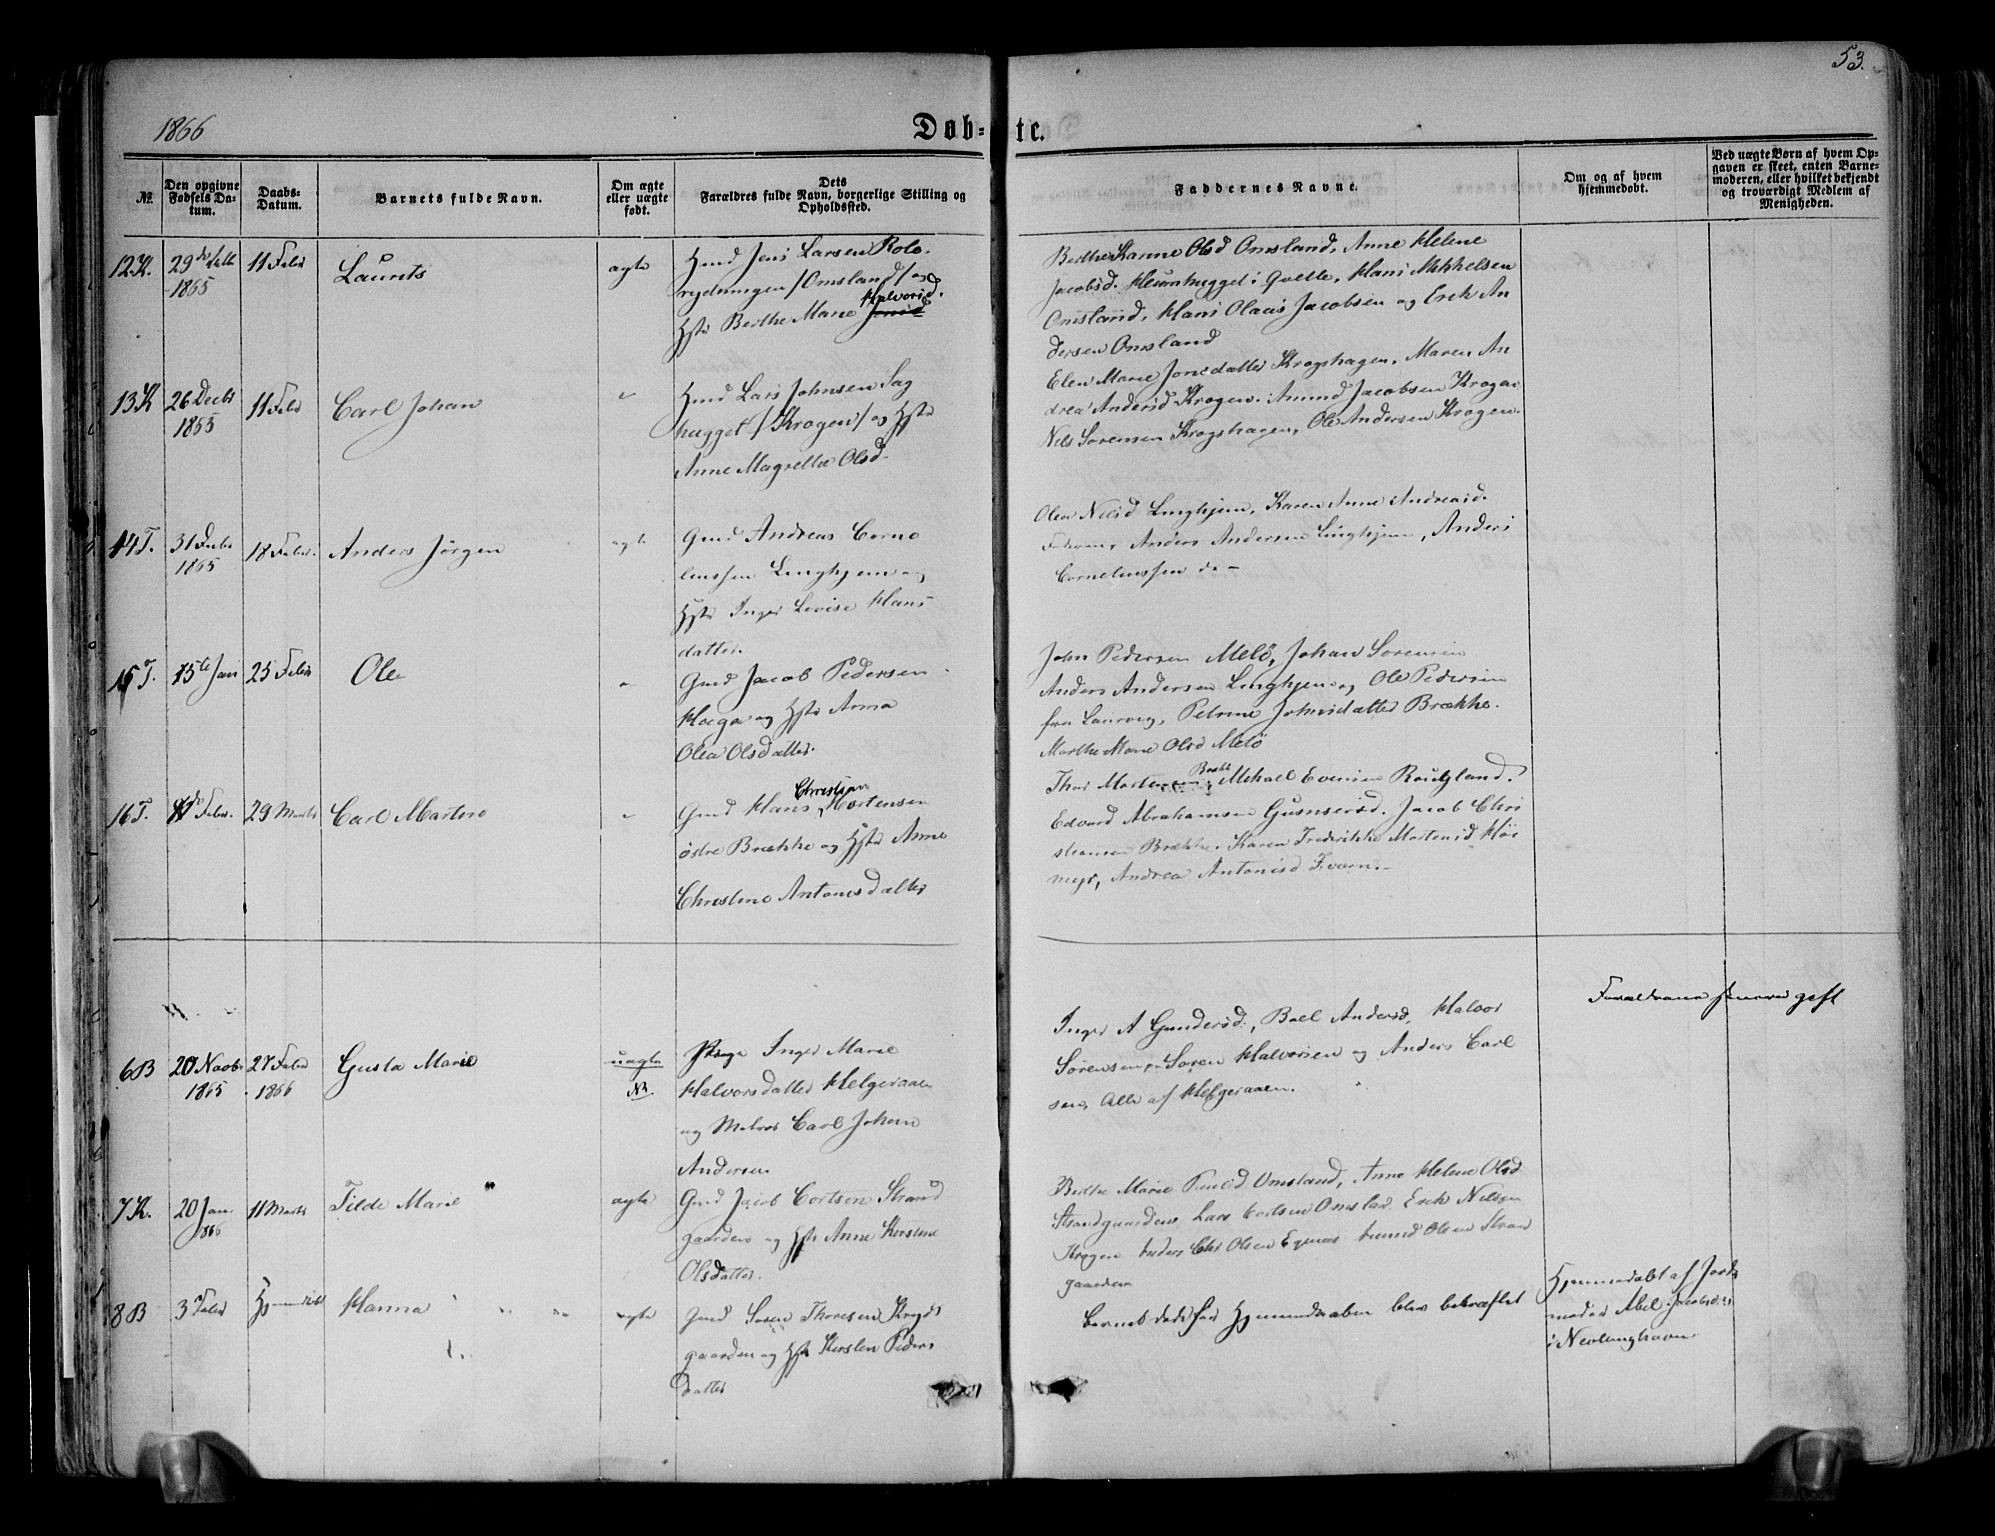 53.
1866
Døb-te.
No.
Den opgivne
Fødsels Da-
tum.
Daabs-
Datum.
Barnets fulde Navn.
Om ægte
eller uægte
født.
Dets
Forældres fulde Navn, borgerlige Stilling og
Opholdssted.
Faddernes Navne.
Om og af hvem
hjemmedøbt.
Ved uægte Børn af hvem Op-
gaven er skeet, enten Barne-
moderen, eller hvilket bekjendt
og troværdigt Medlem af
Menigheden.
12.K.
29
1865
11 Febr
Laurits
ægte
Hmd Jens Larsen
rydningen /Omsland/ og
Hstr Berthe Marie Halvorsd.
Berthe Hanne Olsd Omsland, Anne Helene
Jacobsd. i Qvelle, Hans Mikkelsen
Omsland, Hans Olaus Jacobsen og Erik An
dersen Omsland
13.K
26 Decbr
1865
11 Febr
Carl Johan
"
Hmd Lars Johnsen Sag
hugget /Krogen/ og Hstr
Anne Magrethe Olsd.
Elen Marie Jonsdatter Krogshagen, Maren An
drea Andersd Krogen. Amund Jacobsen Krogen
Nils Sørensen Krogshagen, Ole Andersen Krogen.
14T.
31
1865
18 Febr.
Anders Jörgen
ægte
Gmd Andreas Corne
liussen Linghjem og
Hstr Inger Lovise Hans
datter.
Olea Nilsd Linghjem, Karen Anne Andreasd.
Anders Andersen Linghjem, Anders
Corneliussen do -
15T.
15de Jan
25 Febr
Ole
"
Gmd Jacob Pedersen
Haga og Hstr Anna
Olea Olsdatter.
John Pedersen Melö, Johan Sorensen
Anders Andersen Linghjem og Ole Pedersen
fra Laurvig, Petrine Johnsdatter Brække.
Marthe Marie Olsd Melö
16T.
Febr.
29 Marts
Carl Martin
"
Gmd Hans Christian Mortensen
østre Brække og Hstr Anne
Christine Antonisdatter
Thor Mortensen, Mikael Evensen
Edvard Abrahamsen Gusnerød. Jacob Chri
stiansen Brække. Karen Frederikke Mortensd
myr, Andrea Antonisd Tværn.
6B
20 Novbr
1865
27 Febr
1866
Gusta Marie
uægte
NB.
Pige Inger Marie
Halvorsdatter Helgeraaen
og Matros Carl Johan
Andersen
Inger A Gundersd., Boel Andersd, Halvor
Sørensen, Soren Halvorsen og Anders Carl
sen, Alle af Helgeraaen.
Forældrene senere gift
7K.
20 Jan.
1866
11 Marts
Tilde Marie
ægte
Gmd Jacob Cortsen Strand
gaarden og Hstr Anne Kirstine
Olsdatter.
Berthe Marie Omsland, Anne Helene Olsd
Strandgaarden, Lars Cortsen Omsland Erik Nilsen
Krogen Anders Chr Olsen Egenæs Olsen Stran
gaarden
8B
3 Febr
Hjemmedøbt
Hanna
ægte
Gmd Søren Thoresen
gaarden og Hstr Kirsten Peders
datter
Barnet døde før Hjemmedaaben blev bekræftet
Hjemmedøbt af Jorde
moder Abel Jacobsd
i Nevlunghavn